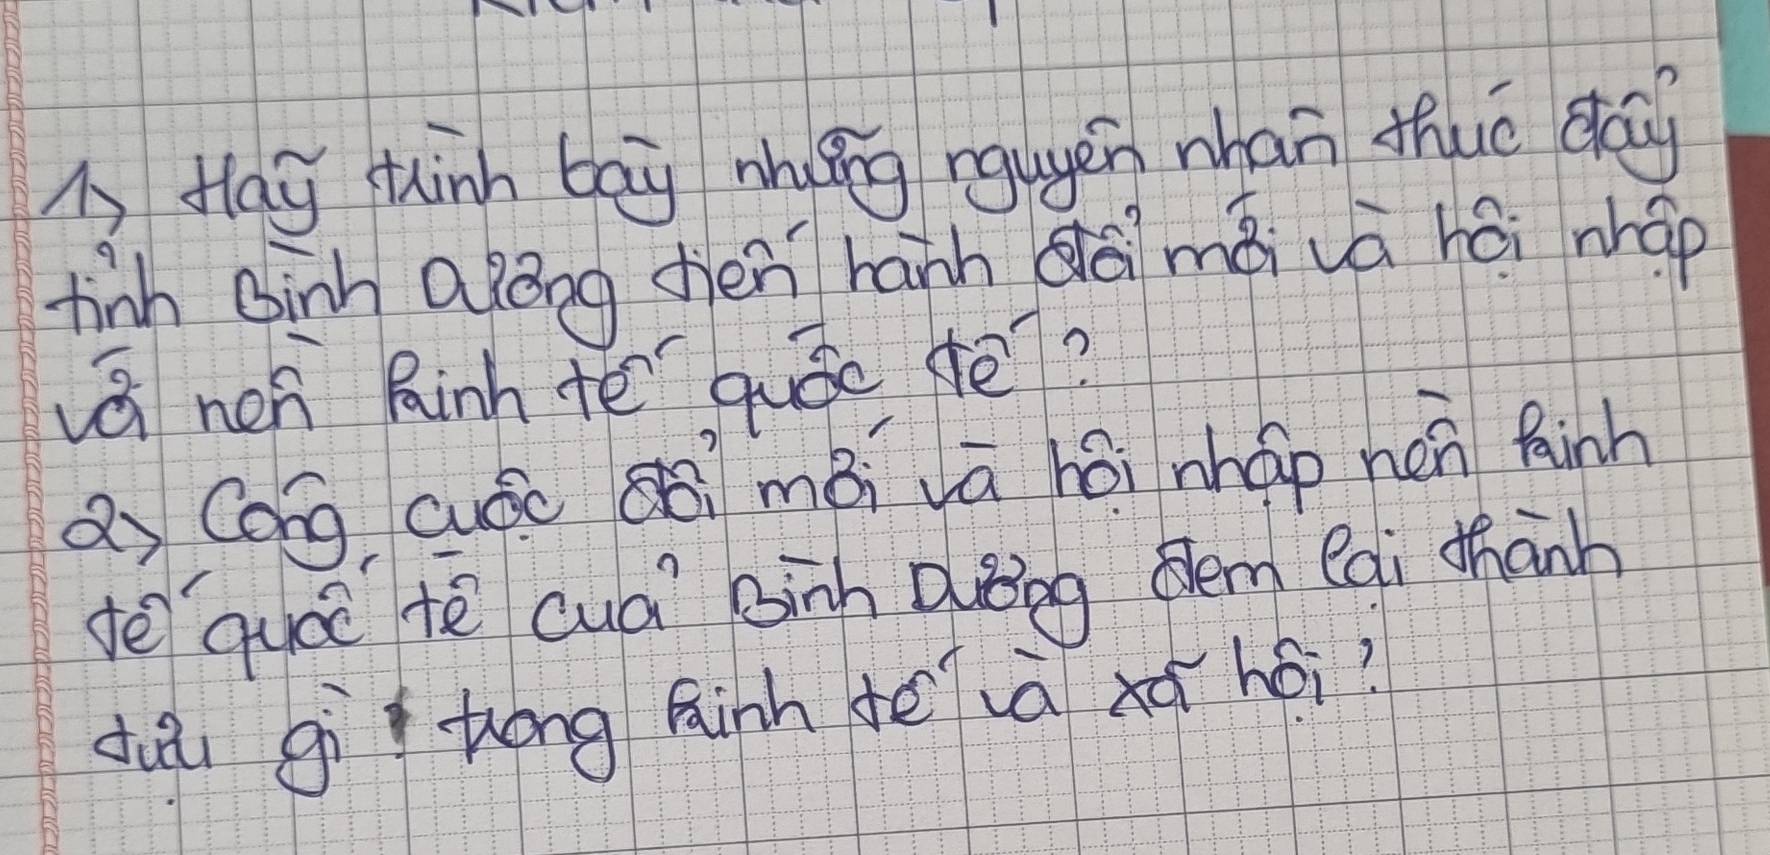 1, Hãy trình bày những nguyên nhân thúc đẩy
tỉnh Bình Dương tiến hành đổi mới và hội nhập
về nền kinh tế quốc tế?
2, Công cuộc đổi mới và hội nhập nền kinh
tế quốc tế của Bình Dương đem lại thành
tựu gì trong kinh tế và xã hội?